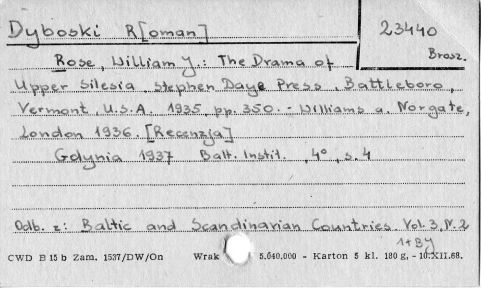 Dyboski R[oman]
23440
Brosz.
Rose, William J.: The Drama of
Upper Silesia, Stephen Daye Press, Battleboro,
Vermont, U.S.A. 1935, pp. 350. - Williams a. Norgate,
London 1936. [Recenzja]
Gdynia 1937 Balt. Instit. , 4°, s. 4
Odb. z: Baltic and Scandinavian Countries. Vol. 3, N. 2
1+BJ
CWD B 15 b Zam. 1537/DW/On Wrak 5.640.000 - Karton 5 kl. 180 g, - 10.XII.68.